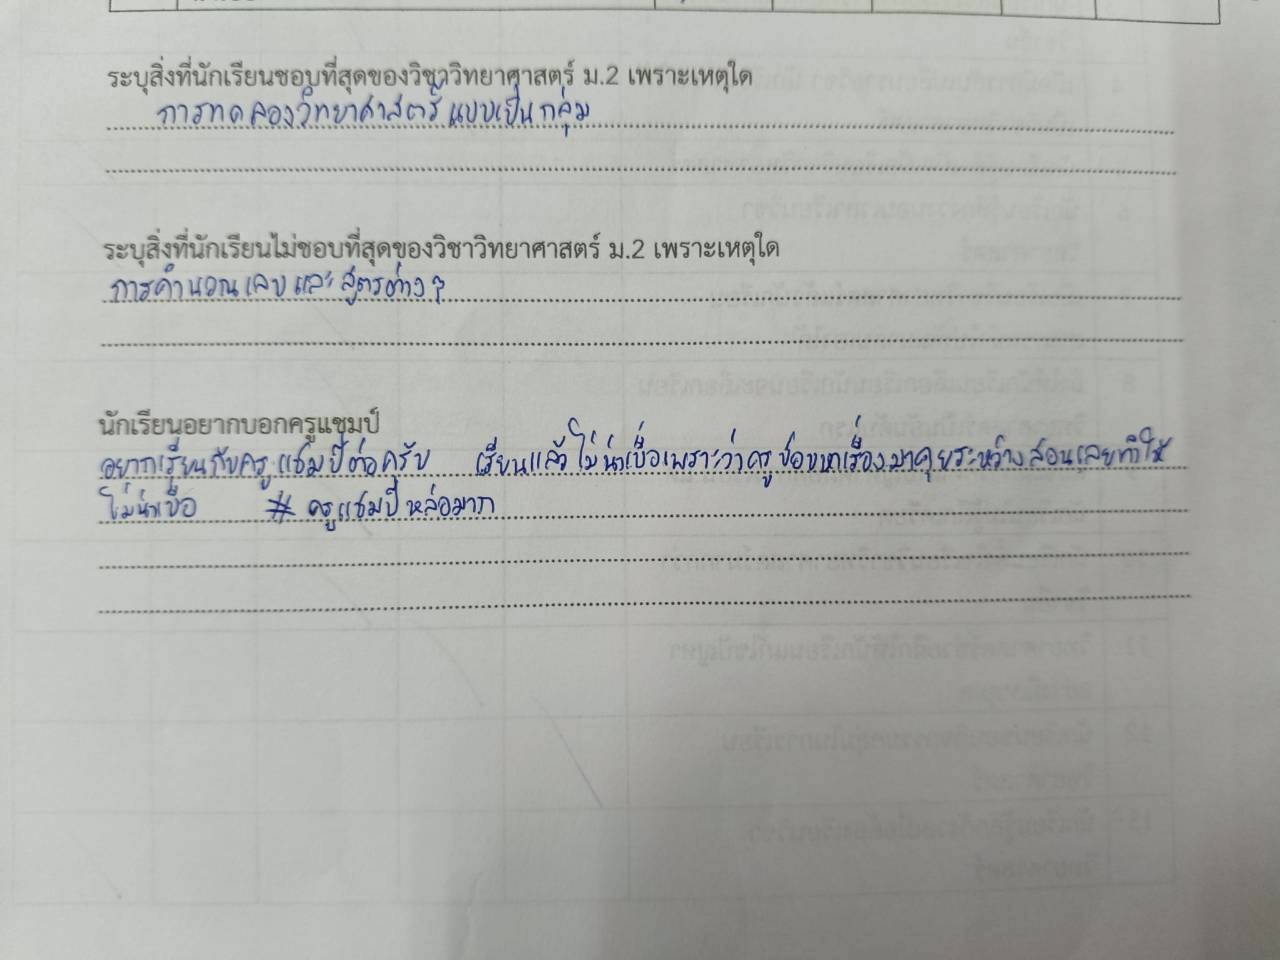 ระบุสิ่งที่นักเรียนชอบที่สุดของวิชาวิทยาศาสตร์ ม.2 เพราะเหตุใด
การทดลองวิทยาศาสตร์แบบเป็นกลุ่ม
ระบุสิ่งที่นักเรียนไม่ชอบที่สุดของวิชาวิทยาศาสตร์ ม.2 เพราะเหตุใด
การคำนวณเลขและสูตรต่างๆ
นักเรียนอยากบอกครูแชมป์
อยากเรียนกับครูแชมป์ต่อครับ เรียนแล้วไม่น่าเบื่อเพราะว่าครูชอบหาเรื่องมาคุยระหว่างสอนเลยทำให้
ไม่น่าเบื่อ # ครูแชมป์หล่อมาก